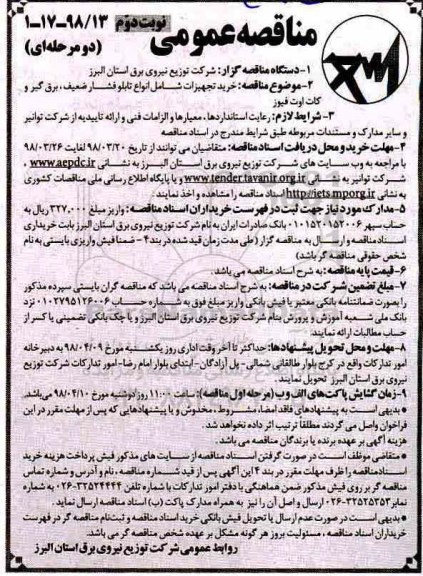 مناقصه عمومی
نوبت دوم
۱-۱۷-۹۸/۱۳
(دو مرحله‌ای)
۱-دستگاه مناقصه گزار: شرکت توزیع نیروی برق استان البرز
۲-موضوع مناقصه: خرید تجهیزات شامل انواع تابلو فشار ضعیف، برق گیر و
کات اوت فیوز
۳- شرایط لازم: رعایت استانداردها، معیارها و الزامات فنی و ارائه تاییدیه از شرکت توانیر
و سایر مدارک و مستندات مربوطه طبق شرایط مندرج در اسناد مناقصه
۴-مهلت خرید و محل دریافت اسناد مناقصه: متقاضیان می توانند از تاریخ ۹۸/۰۳/۲۰ لغایت ۹۸/۰۳/۲۶
با مراجعه به وب سایت های شرکت توزیع نیروی برق استان البرز به نشانی www.aepdc.ir ،
شرکت توانیر به نشانی www.tender.tavanir.org.ir و یا پایگاه اطلاع رسانی ملی مناقصات کشوری
به نشانی http://iets.mporg.ir اسناد مناقصه را مشاهده و اخذ نمایند.
۵-مدارک مورد نیاز جهت ثبت در فهرست خریداران اسناد مناقصه: واریز مبلغ ۳۲۷,۰۰۰ ریال به
حساب سپهر ۰۱۰۱۵۲۰۱۵۲۰۰۶ بانک صادرات ایران به نام شرکت توزیع نیروی برق استان البرز بابت خریداری
اسناد مناقصه و ارسال به مناقصه گزار (طی مدت زمان قید شده در بند۴ - ضمنا فیش واریزی بایستی به نام
شخص حقوقی مناقصه گر باشد)
۶-قیمت پایه مناقصه: به شرح اسناد مناقصه می باشد.
۷-مبلغ تضمین شرکت در مناقصه: به شرح اسناد مناقصه می باشد که مناقصه گران بایستی سپرده مذکور
را بصورت ضمانتنامه بانکی معتبر یا فیش بانکی واریز مبلغ فوق به شماره حساب ۰۱۰۲۷۹۵۱۲۶۰۰۶ نزد
بانک ملی شعبه آموزش و پرورش بنام شرکت توزیع نیروی برق استان البرز و یا چک بانکی تضمینی یا کسر از
حساب مطالبات ارائه نمایند.
۸-مهلت و محل تحویل پیشنهادها: حداکثر تا آخر وقت اداری روز یکشنبه مورخ ۹۸/۰۴/۰۹ به دبیرخانه
امور تدارکات واقع در کرج بلوار طالقانی شمالی- پل آزادگان- ابتدای بلوار امام رضا- امور تدارکات شرکت توزیع
نیروی برق استان البرز تحویل نمایند.
۹-زمان گشایش پاکت‌های الف و ب (مرحله اول مناقصه): ساعت ۱۱:۰۰ روز دوشنبه مورخ ۹۸/۰۴/۱۰ می‌باشد.
• بدیهی است به پیشنهادهای فاقد امضا، مشروط، مخدوش و یا پیشنهادهایی که پس از مهلت مقرر در این
فراخوان واصل می گردند مطلقا ترتیب اثر داده نخواهد شد.
هزینه آگهی بر عهده برنده یا برندگان مناقصه می باشد.
• متقاضی موظف است در صورت گرفتن اسناد مناقصه از سایت های مذکور فیش پرداخت هزینه خرید
اسناد مناقصه را ظرف مهلت مقرر در بند ۴ این آگهی پس از قید شماره مناقصه، نام و آدرس و شماره تماس
مناقصه گر بر روی فیش مذکور ضمن هماهنگی با دفتر امور تدارکات با شماره تلفن ۳۲۵۲۴۴۴۴-۰۲۶ به شماره
نمابر ۳۲۵۲۵۲۵۳-۰۲۶ ارسال و اصل آن را نیز به همراه مدارک پاکت (ب) اسناد مناقصه ارسال نماید.
• بدیهی است در صورت عدم ارسال یا تحویل فیش بانکی خرید اسناد مناقصه و ثبت‌نام مناقصه گر در فهرست
خریداران اسناد مناقصه، مسئولیت بروز هر گونه مشکل بر عهده شخص مناقصه گر می باشد.
روابط عمومی شرکت توزیع نیروی برق استان البرز